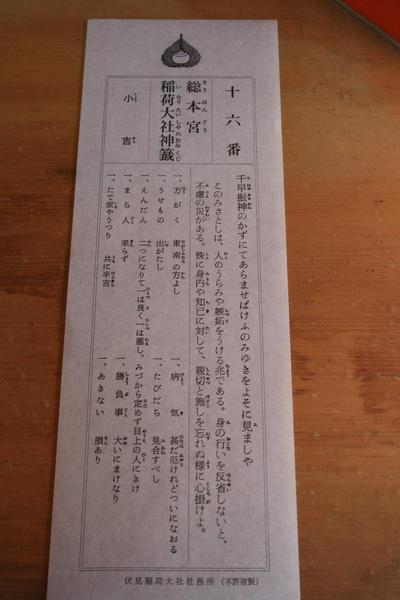 十六番
総本宮
稲荷大社神籤
小吉
千早振神のかずにてあらませばけふのみゆきをよそに見ましや
このみさとしは、人のうらみや嫉妬をうける兆である。身の行いを反省しないと、
不慮の災がある。殊に身内や知己に対して、親切と施しを忘れぬ様に心掛けよ。
一、方がく 東南の方よし
一、うせもの 出がたし
一、えんだん 二つになりて一は良く一は悪し、みづから定めず目上の人にきけ
一、まち人 来らず
一、たて家やうつり 共に半吉
一、病気 甚だ厄けれどついになおる
一、たびだち 見合すべし
一、勝負事 大いにまけなり
一、あきない 損あり
伏見稲荷大社社務所 (不許複製)